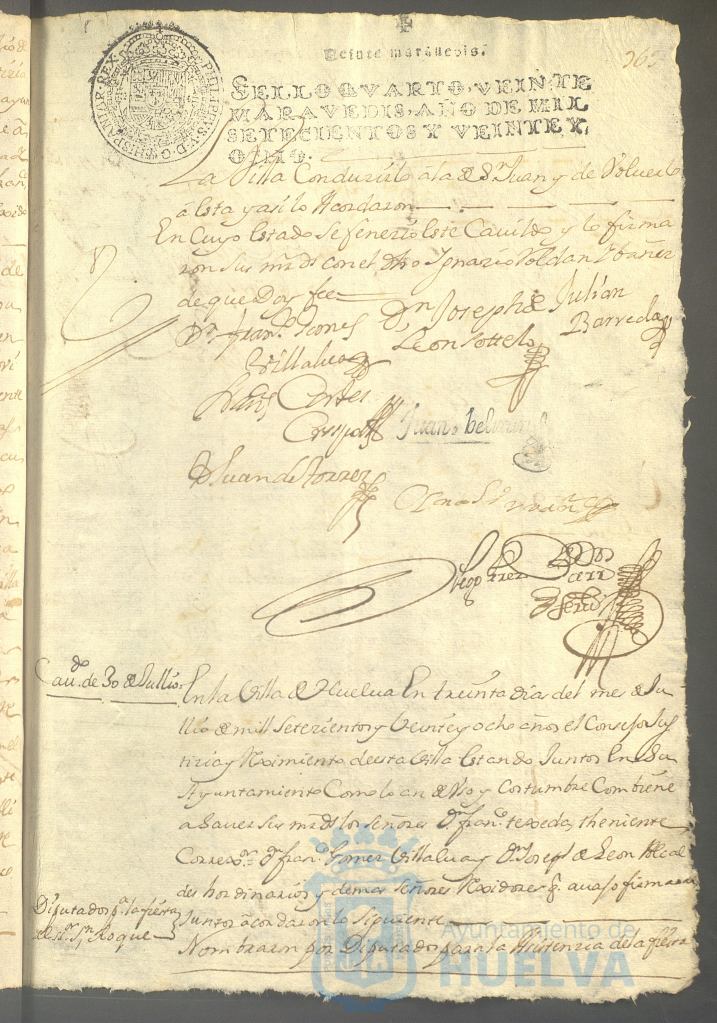 363
Veinte marauedis.
PHILIPPVS V D G HISPANIAR REX
SELLO QVARTO, VEINTE
MARAVEDIS, AÑO DE MIL
SETECIENTOS Y VEINTE Y
OCHO.
La Villa Conduzirlo a la de Sn Juan y de Volverlo
a esta y asi lo Acordaron
En Cuyo estado se fenezio este Cavildo y lo firma
ron sus mrds con el dho Ignazio Roldan Ybañez
de que Doy fee
Dn Franco Gomes
Villalua
Dn Joseph de
Leon Sottelo
Julian
Barreda
Luis Cortes
Crespo
Juan Beltran
D Juan de Torres
Caudo de 30 de Jullio.
En la Villa de Huelua En treinta dias del mes de Ju
llio de mill setezientos y Veinte y ocho años el Consejo Jus
tizia y Reximiento de esta Villa Estando Juntos En su
Ayuntamiento Como lo an de Uso y Costumbre Combiene
a Sauer sus mrds los señores Dn franco texeda, theniente
Correxor Dn franco Gomez Villalua y Dn Joseph de Leon Alcal
des hordinarios y demas señores Rexidores q auajo firmaran
Juntos acordaron lo siguiente
Diputados pa la fiesta
de Sor Sn Roque
Nombraron por Diputados para la Asistenzia de la fiesta
Ayuntamiento de
HUELVA